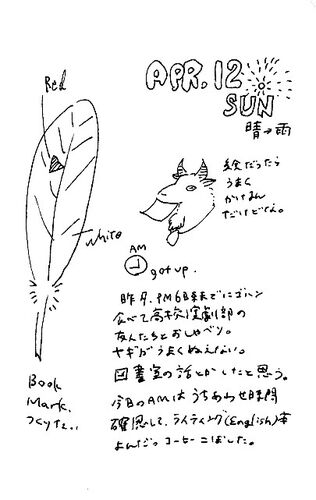 Red
APR.12
SUN
晴→雨
絵だったら
うまく
かけるん
だけどなぁ。
White
AM
got up.
PM6時までにゴハン
食べて高校演劇部の
友人たちとおしゃべり。
ヤギがうまくぬえない。
図書室の話とかしたと思う。
今日のAMは うちあわせ時間
確認して、ライティング(English)本
よんだ コーヒーこぼした。
Book
Mark.